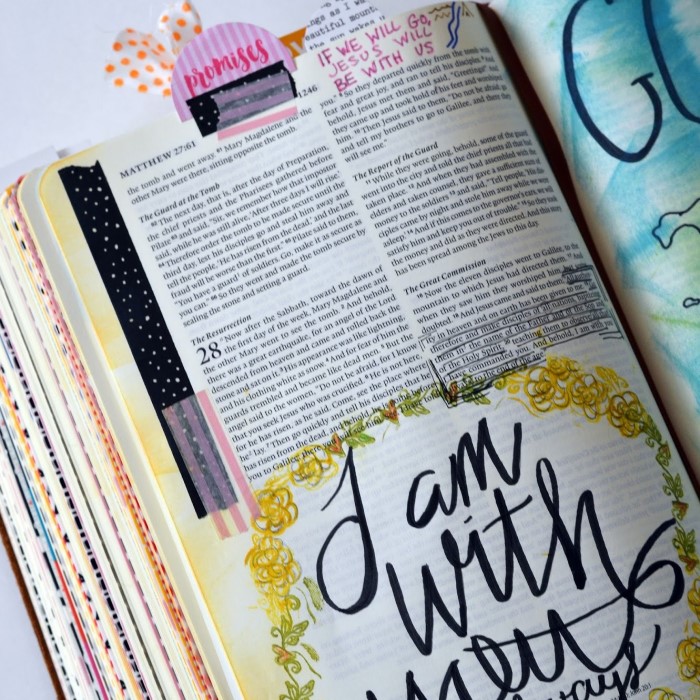 promises
IF WE WILL GO,
JESUS WILL
BE WITH US
1246
MATTHEW 27:61
the tomb and went away. 61 Mary Magdalene and the
other Mary were there, sitting opposite the tomb.
The Guard at the Tomb
62 The next day, that is, after the day of Preparation,
the chief priests and the Pharisees gathered before
Pilate 63 and said, "Sir, we remember how that impostor
said, while he was still alive, 'After three days I will rise.'
64 Therefore order the tomb to be made secure until the
third day, lest his disciples go and steal him away and
tell the people, 'He has risen from the dead,' and the last
fraud will be worse than the first." 65 Pilate said to them,
"You have a guard of soldiers. Go, make it as secure as
you can." 66 So they went and made the tomb secure by
sealing the stone and setting a guard.
The Resurrection
28 Now after the Sabbath, toward the dawn of
the first day of the week, Mary Magdalene and
the other Mary went to see the tomb. 2 And behold,
there was a great earthquake, for an angel of the Lord
descended from heaven and came and rolled back the
stone and sat on it. 3 His appearance was like lightning,
and his clothing white as snow. 4 And for fear of him the
guards trembled and became like dead men. 5 But the
angel said to the women, "Do not be afraid, for I know
that you seek Jesus who was crucified. 6 He is not here,
for he has risen, as he said. Come, see the place where
he lay. 7 Then go quickly and tell his disciples that he
has risen from the dead, and behold, he is going before
you to Galilee; there you
you." 8 So they departed quickly from the tomb with
fear and great joy, and ran to tell his disciples. 9 And
behold, Jesus met them and said, "Greetings!" And
they came up and took hold of his feet and worshiped
him. 10 Then Jesus said to them, "Do not be afraid; go
and tell my brothers to go to Galilee, and there they
will see me."
The Report of the Guard
11 While they were going, behold, some of the guard
went into the city and told the chief priests all that had
taken place. 12 And when they had assembled with the
elders and taken counsel, they gave a sufficient sum of
money to the soldiers 13 and said, "Tell people, 'His dis-
ciples came by night and stole him away while we were
asleep.' 14 And if this comes to the governor's ears, we will
satisfy him and keep you out of trouble." 15 So they took
the money and did as they were directed. And this story
has been spread among the Jews to this day.
The Great Commission
16 Now the eleven disciples went to Galilee, to the
mountain to which Jesus had directed them. 17 And
when they saw him they worshiped him, but some
doubted. 18 And Jesus came and said to them,
in heaven and on earth has been given to me.
therefore and make disciples of all nations, baptizing
them in the name of the Father and of the Son and
of the Holy Spirit, 20 teaching them to observe all
commanded you. And behold, I am with you
to the end of the age
I am
with
you
always